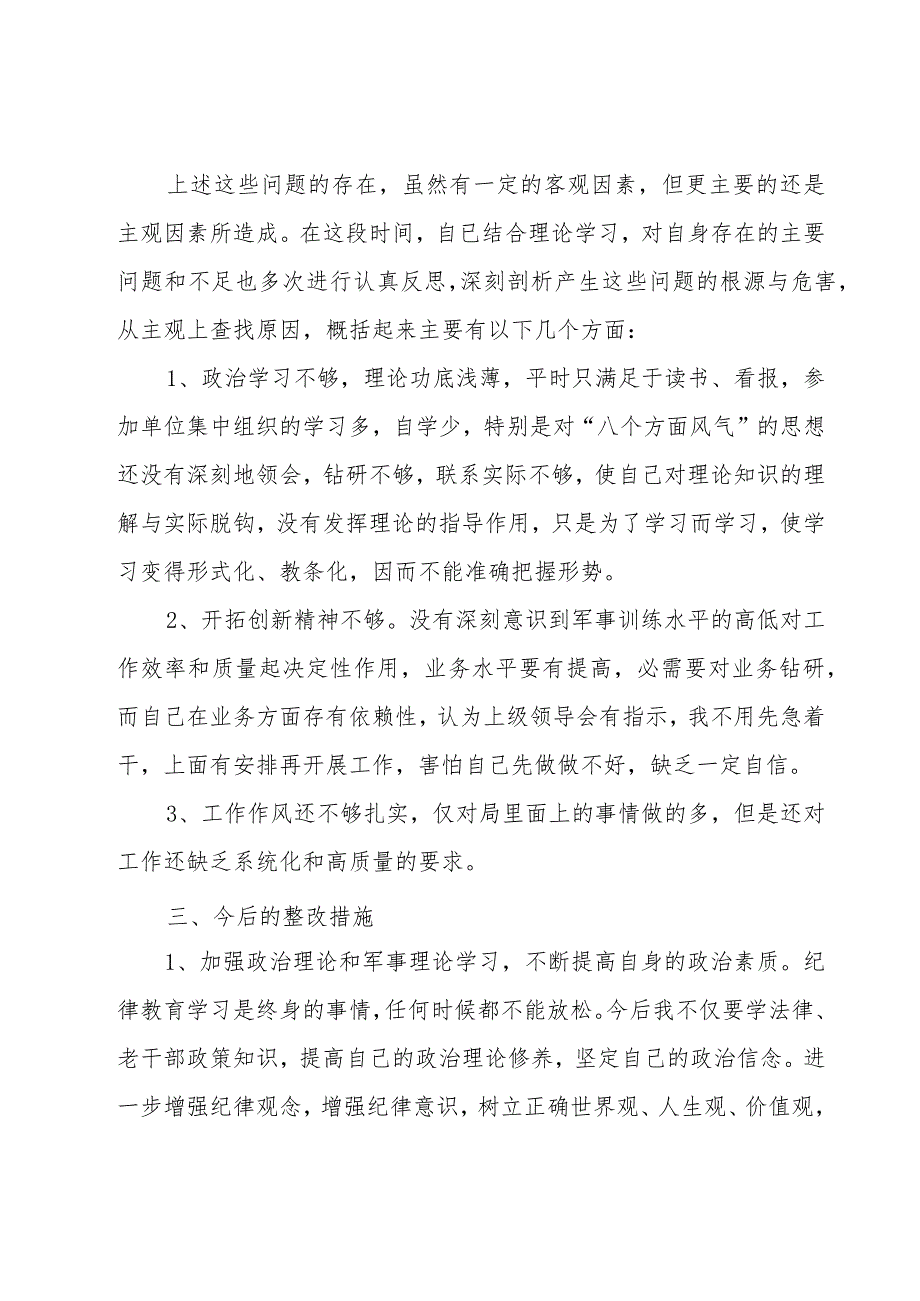 上述这些问题的存在，虽然有一定的客观因素，但更主要的还是
主观因素所造成。在这段时间，自已结合理论学习，对自身存在的主要
问题和不足也多次进行认真反思，深刻剖析产生这些问题的根源与危害，
从主观上查找原因，概括起来主要有以下几个方面：
1、政治学习不够，理论功底浅薄，平时只满足于读书、看报，参
加单位集中组织的学习多，自学少，特别是对“八个方面风气”的思想
还没有深刻地领会，钻研不够，联系实际不够，使自己对理论知识的理
解与实际脱钩，没有发挥理论的指导作用，只是为了学习而学习，使学
习变得形式化、教条化，因而不能准确把握形势。
2、开拓创新精神不够。没有深刻意识到军事训练水平的高低对工
作效率和质量起决定性作用，业务水平要有提高，必需要对业务钻研，
而自己在业务方面存有依赖性，认为上级领导会有指示，我不用先急着
干，上面有安排再开展工作，害怕自己先做做不好，缺乏一定自信。
3、工作作风还不够扎实，仅对局里面上的事情做的多，但是还对
工作还缺乏系统化和高质量的要求。
三、今后的整改措施
1、加强政治理论和军事理论学习，不断提高自身的政治素质。纪
律教育学习是终身的事情，任何时候都不能放松。今后我不仅要学法律、
老干部政策知识，提高自己的政治理论修养，坚定自己的政治信念。进
一步增强纪律观念，增强纪律意识，树立正确世界观、人生观、价值观，